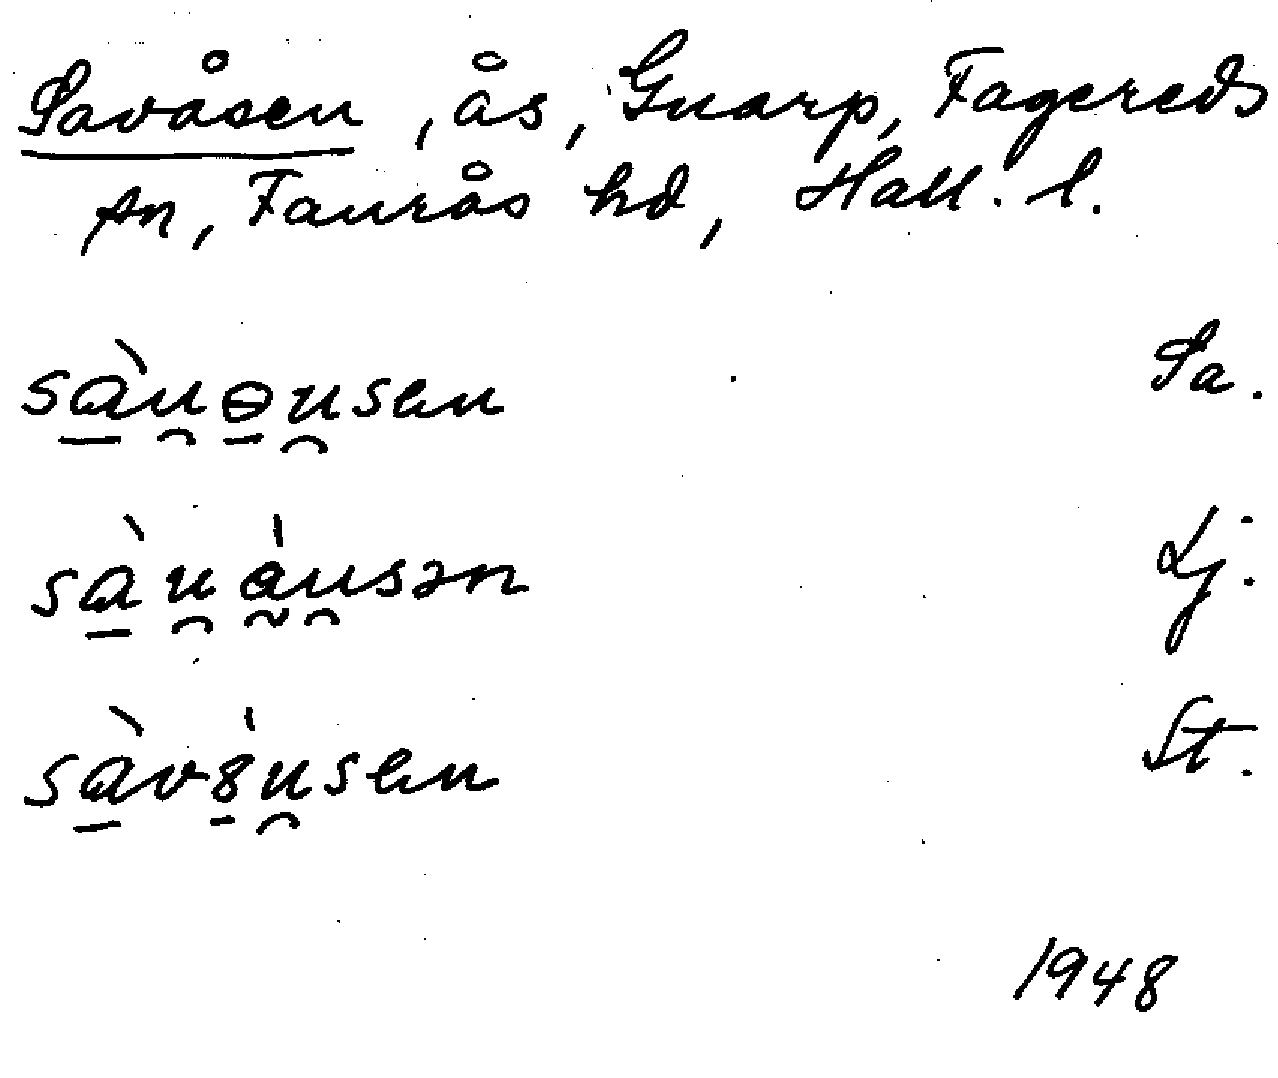 Savåsen, ås, Gnarp, Fagereds
sn, Faurås hd, Hall. l.
sà̱u̯ɵ̱u̯sen Sa.
sà̱u̯á̰u̯sən Lj.
sà̱v8̱́u̯sen St.
1948